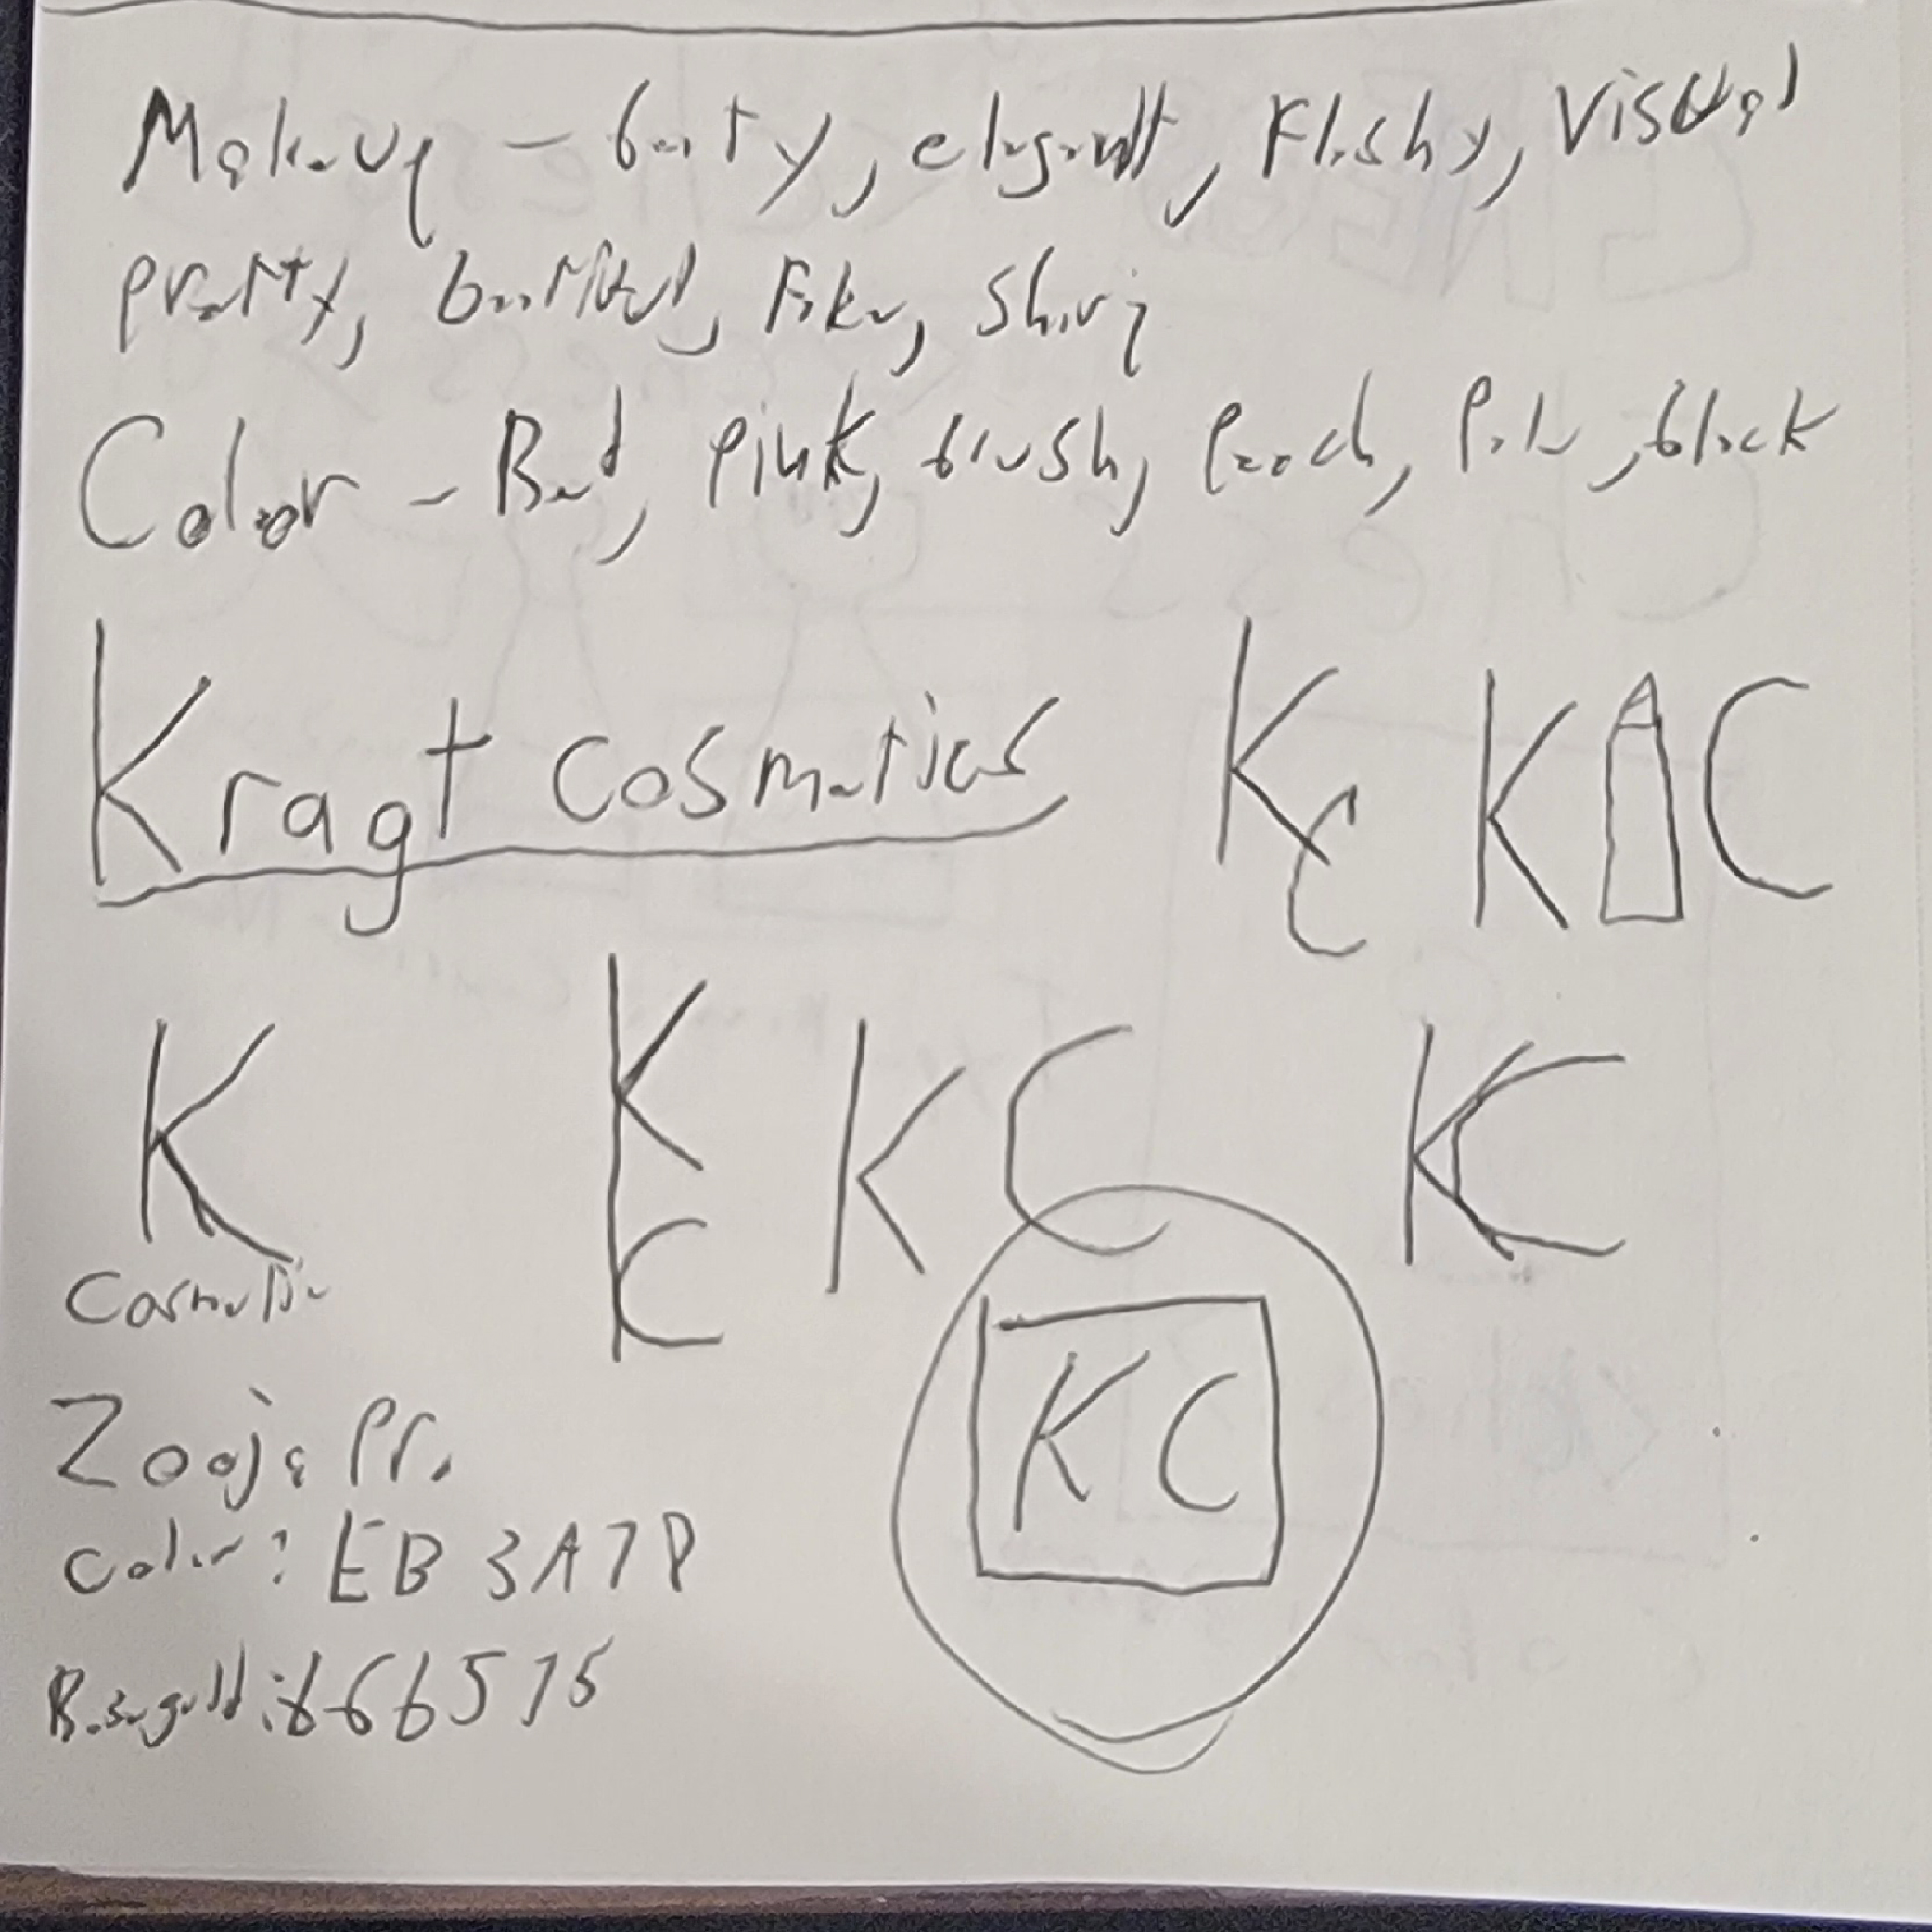 Makeup - beauty, elegant, Flashy, Visual
pretty, beautiful, Fake, Shiny
Color - Red, pink, blush, Peach, Pale, black
Kragt Cosmetics
KC
K C
K
Cosmetic
K
C
K C
KC
K C
Zooja Pro
Color: EB 3A7P
Rosegold: b66575